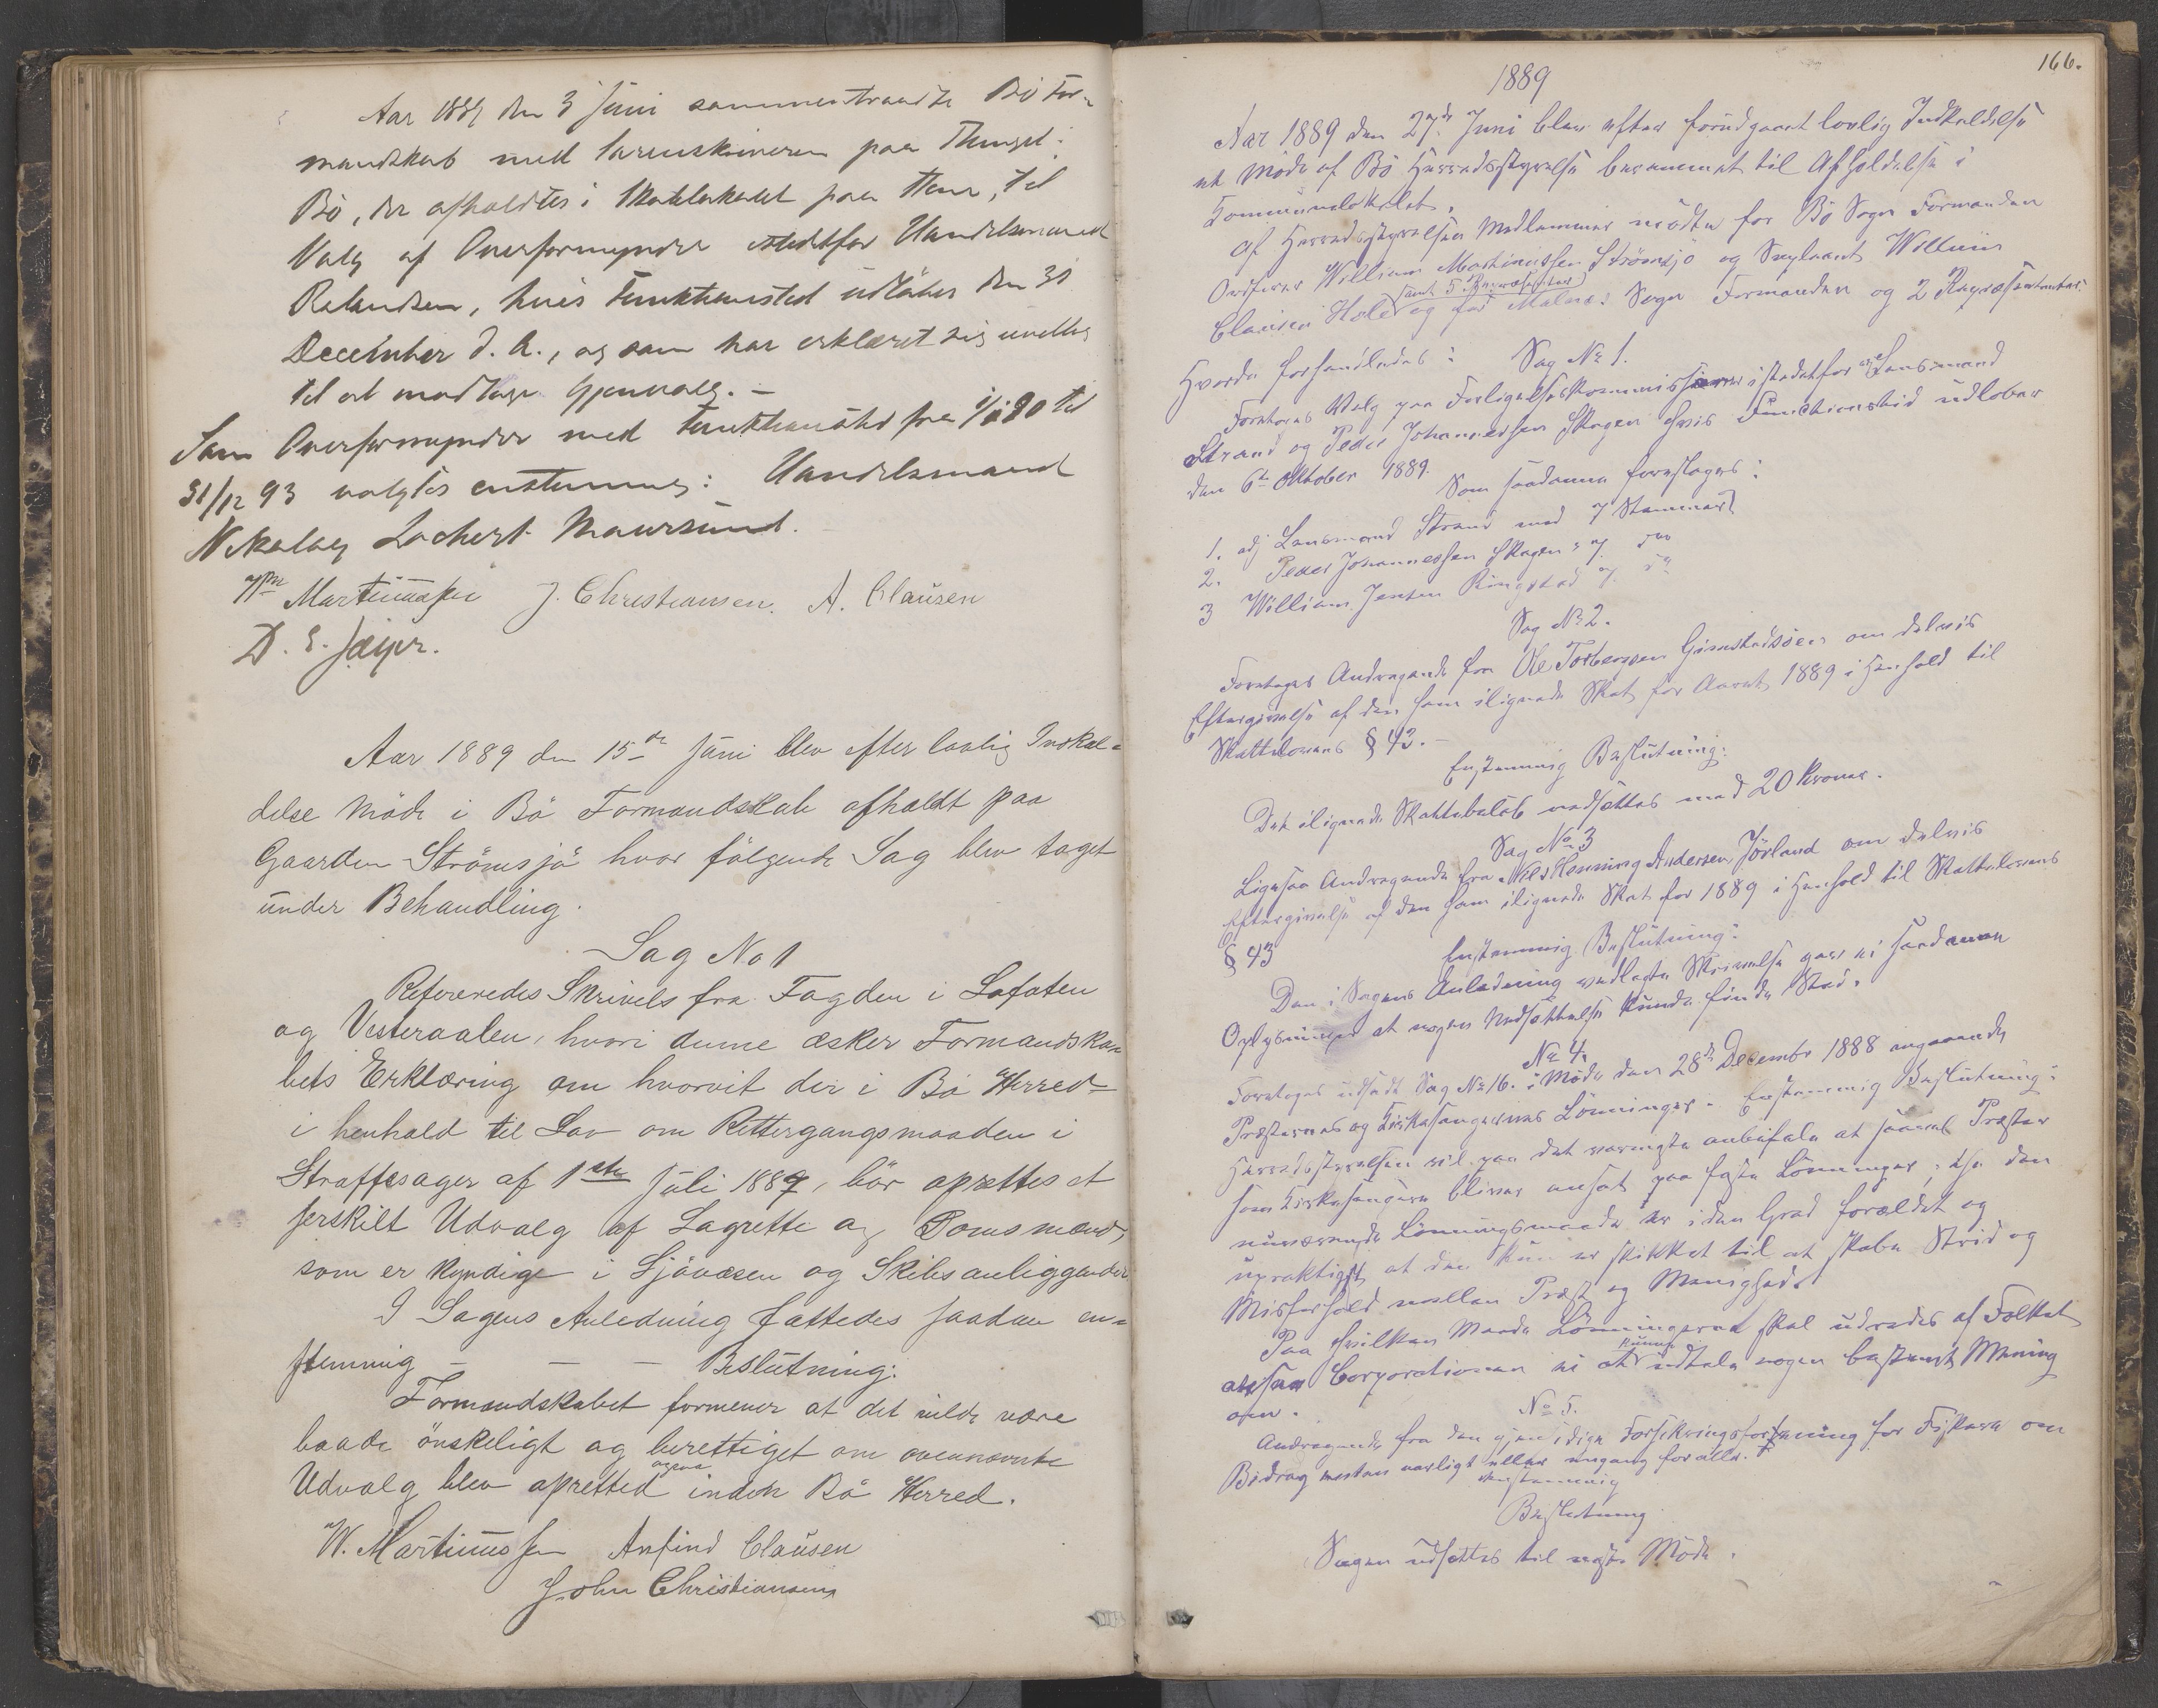 Aar 1889 den 3 Juni sammentraadte Bö For-
mandskab med Sorenskriveren paa Thinget i
Bö, der afholdtes i Skolelokalet paa Steine, til
Valg af Overformynder istedetfor Handelsmand
Rolandsen, hvis Funktionstid udlöber den 31
December d. A., og som har erklæret sig uvillig
til at modtage Gjenvalg. —
Som Overformynder med Funktionstid fra 1/1 90 til
31/12 93 valgtes enstemmig: Handelsmand
Nikolay Lochert Maursund.
Wm Martinussen J. Christiansen. A. Clausen
D. E.
Aar 1889 den 15de Juni blev efter lovlig Indkal-
delse Möde i Bö Formandskab afholdt paa
Gaarden Strömsjö hvor fölgende Sag blev taget
under Behandling.
Sag No 1
Refereredes Skrivels fra Fogden i Lofoten
og Vesteraalen, hvori denne æsker Formandska-
bets Erklæring om hvorvit der i Bö Herred
i henhold til Lov om Rettergangsmaaden i
Straffesager af 1ste Juli 1887, bör oprettes et
serskilt Udvalg af Lagrette og Domsmænd,
som er kyndige i Sjövæsen og Skibsanliggender
I Sagens Anledning fattedes saadan en-
stemmig — — — Beslutning:
Formandskabet formener at det vilde være
baade önskeligt og berettiget om ovennævnte
Udvalg blev opretted ogsaa inden Bö Herred.
W. Martinussen Anfind Clausen
John Christiansen
166.
1889
Aar 1889 den 27de Juni blev efter forudgaaet lovlig Indkaldelse
et Möde af Bö Herredsstyrelse berammet til Afholdelse i
Kommunelokalet.
Af Herredsstyrelsens Medlemmer mödte for Bö Sogn Formanden
Ordförer William Martinussen Strömsjö og Supleant William
Clausen Hole samt 5 Repræsentanter og for Malnes Sogn Formanden og 2 Repræsentanter.
Hvorda forhandledes: Sag No 1.
Foretoges Valg paa Forligelseskommissærer istedetfor adj Lensmand
Strand og Peder Johannessen Skagen hvis Functionstid udlöber
den 6te Oktober 1889.
Som saadanne foreslages:
1. adj Lensmand Strand med 7 Stemmer
2. Peder Johannessen Skagen " 7. do
3 William Jensen Ringstad " 7. do
Sag No 2.
Foretoges Andragende fra Ole Torbersen Gimstadsöen om delvis
Eftergivelse af den ham ilignede Skat for Aaret 1889 i Henhold til
Skattelovens § 43. —
Enstemmig Beslutning:
Det ilignede Skattebeløb nedsættes med 20 Kroner.
Sag No 3
Ligesaa Andragende fra Nils Henning Andersen Jörland om delvis
Eftergivelse af den ham ilignede Skat for 1889 i Henhold til Skattelovens
§ 43
Enstemmig Beslutning:
Den i Sagens Anledning vedlagte Skrivelse gav ei saadanne
Oplysninger at nogen Nedsættelse kunde finde Sted.
No 4.
Foretoges udsadt Sag No 16. i Möde den 28de Decembr 1888 angaaende
Præsternes og Kirkesangernes Lönninger. Enstemmig Beslutning:
Herredsstyrelsen vil paa det varmeste anbefale at saavel Præster
som Kirkesangere bliver ansat paa faste Lönninger, thi den
nuværende Lönningsmaade er i den Grad forældet og
upraktigst at den kun er skikket til at skabe Strid og
Misforhold mellem Præst og Menighed.
Paa hvilken Maade Lönningerne skal udredes af Folket
Corporationen ei at kunne udtale nogen bestemt Mening
om.
No 5.
Andragende fra den gjensidige Forsikringsforening for Fiskere om
Bidrag enten aarligt eller engang for alle.
Enstemmig
Beslutning
Sagen udsættes til næste Möde.